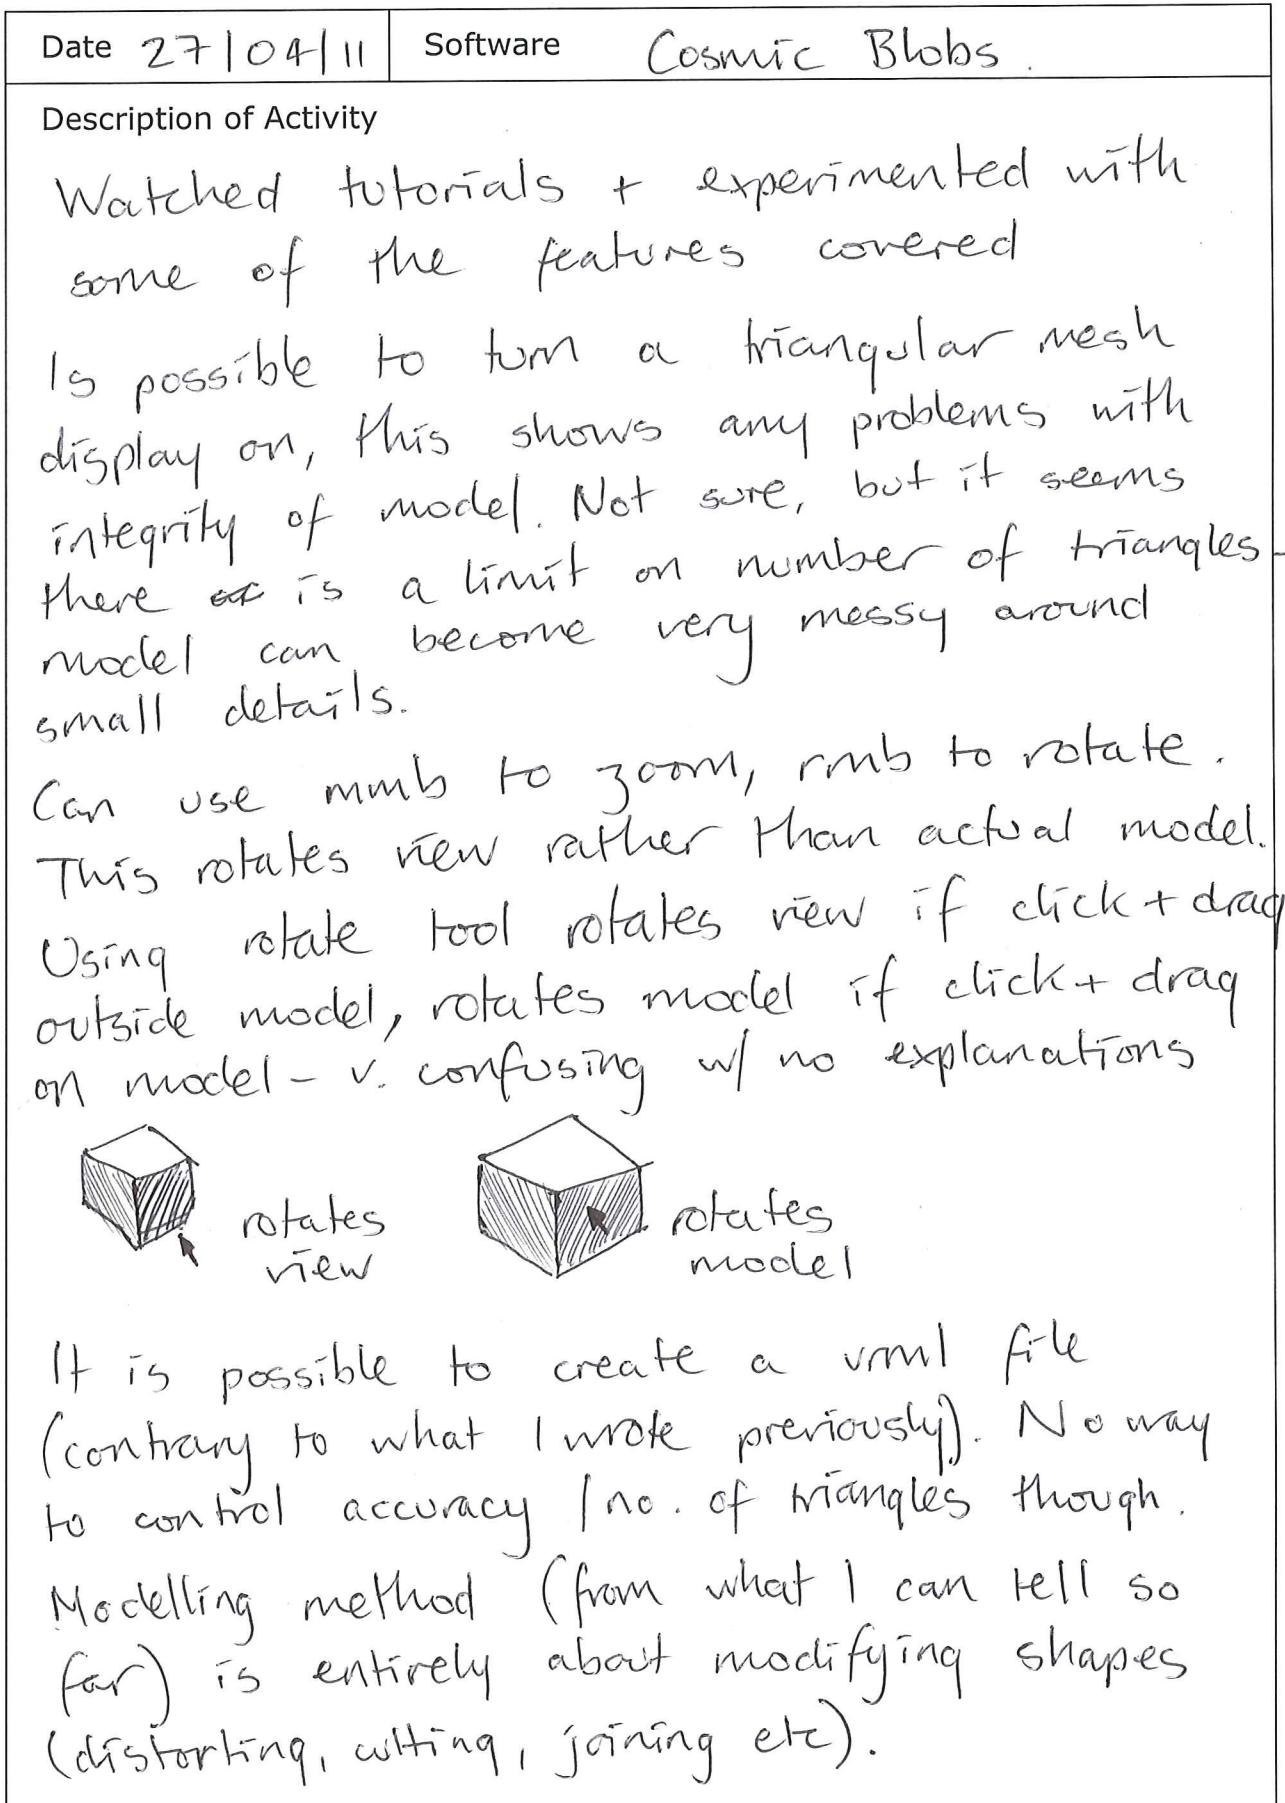 Date 27/04/11 Software Cosmic Blobs.
Description of Activity
Watched tutorials + experimented with
some of the features covered
Is possible to turn a triangular mesh
display on, this shows any problems with
integrity of model. Not sure, but it seems
there is a limit on number of triangles -
model can become very messy around
small details.
Can use mmb to zoom, rmb to rotate.
This rotates view rather than actual model.
Using rotate tool rotates view if click + drag
outside model, rotates model if click + drag
on model - v. confusing w/ no explanations
rotates
view
rotates
model
It is possible to create a vrml file
(contrary to what I wrote previously). No way
to control accuracy / no. of triangles though.
Modelling method (from what I can tell so
far) is entirely about modifying shapes
(distorting, cutting, joining etc).